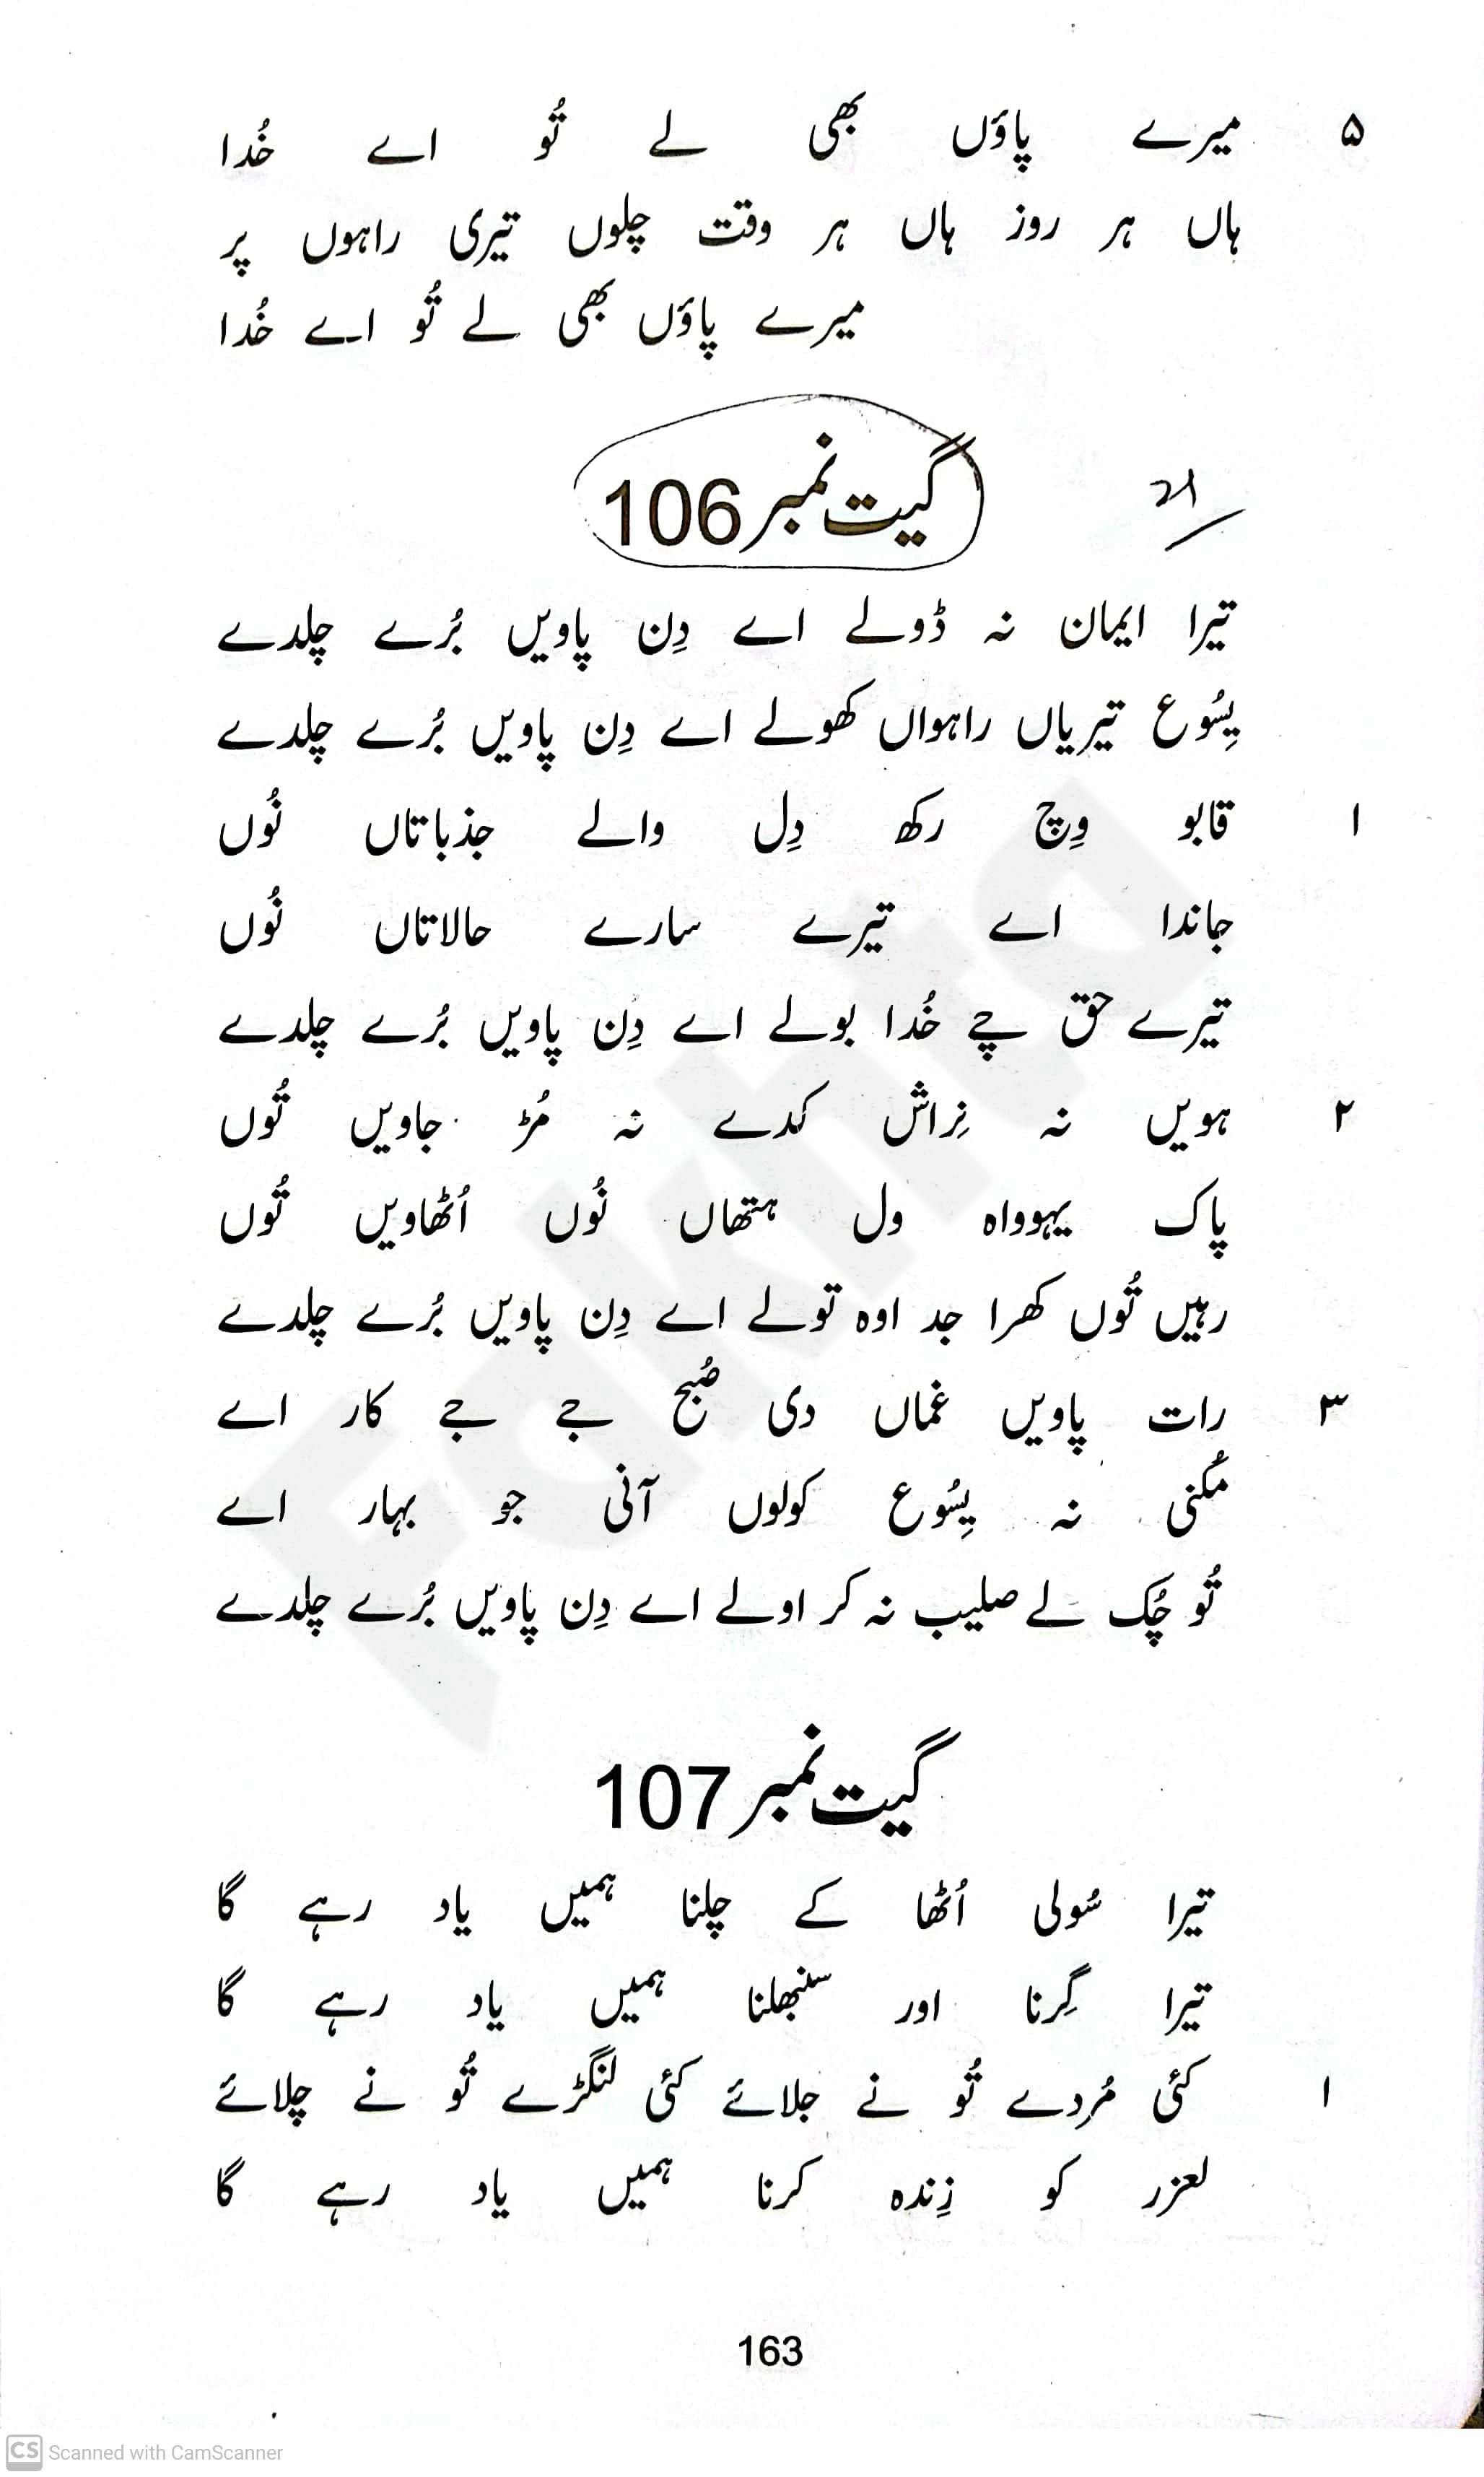 ۵ میرے پاؤں بھی لے تُو اے خُدا
ہاں ہر روز ہاں ہر وقت چلوں تیری راہوں پر
میرے پاؤں بھی لے تُو اے خُدا
گیت نمبر 106
تیرا ایمان نہ ڈولے اے دِن پاویں بُرے چلدے
یِسُوع تیریاں راہواں کھولے اے دِن پاویں بُرے چلدے
۱ قابو وِچ رکھ دِل والے جذباتاں نُوں
جاندا اے تیرے سارے حالاتاں نُوں
تیرے حق چے خُدا بولے اے دِن پاویں بُرے چلدے
۲ ہویں نہ نِراش کدے نہ مُڑ جاویں تُوں
پاک یہوواہ ول ہتھاں نُوں اُٹھاویں تُوں
رہیں تُوں کھرا جد اوہ تولے اے دِن پاویں بُرے چلدے
۳ رات پاویں غماں دی صُبح جے جے کار اے
مُکنی نہ یِسُوع کولوں آنی جو بہار اے
تُو چُک لے صلیب نہ کر اولے اے دِن پاویں بُرے چلدے
گیت نمبر 107
تیرا سُولی اُٹھا کے چلنا ہمیں یاد رہے گا
تیرا گِرنا اور سنبھلنا ہمیں یاد رہے گا
۱ کئی مُردے تُو نے جلائے کئی لنگڑے تُو نے چلائے
لعزر کو زِندہ کرنا ہمیں یاد رہے گا
163
Fakhta
CS Scanned with CamScanner